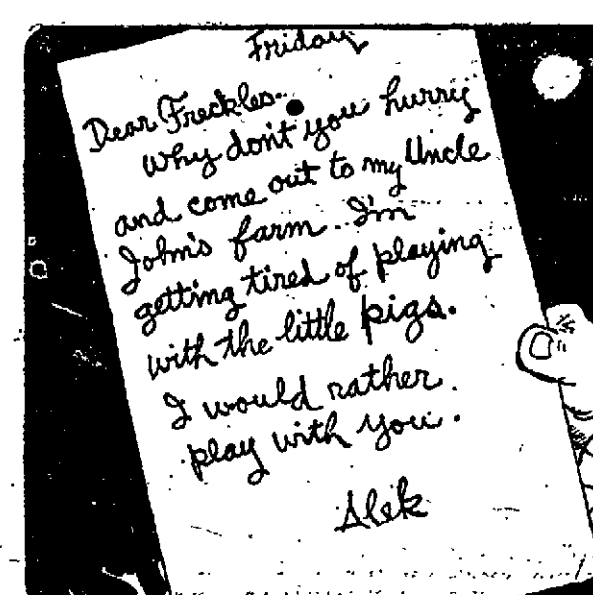 Friday
Dear Freckles..
Why don't you hurry
and come out to my Uncle
John's farm. I'm
getting tired of playing
with the little pigs.
I would rather
play with you.
Alek